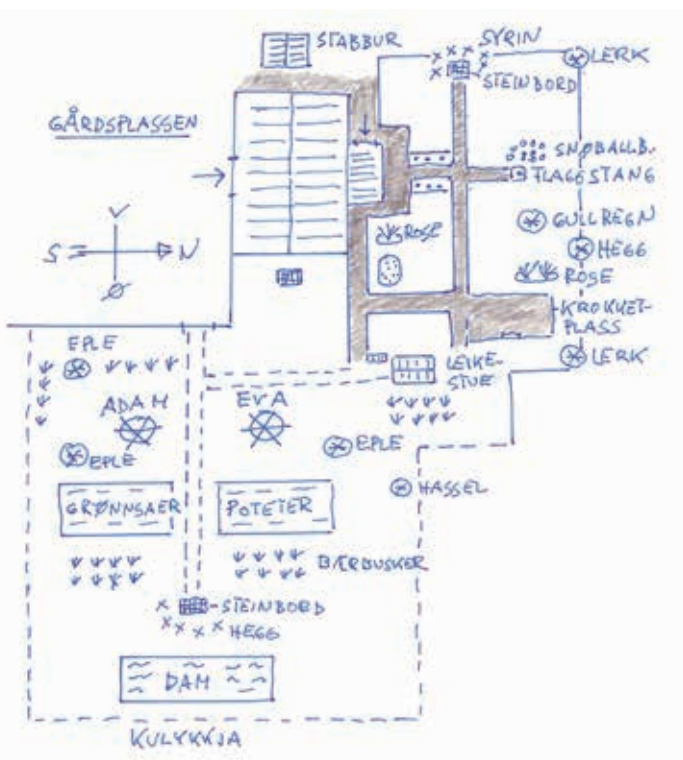 STABBUR
SYRIN
LERK
STEINBORD
GÅRDSPLASSEN
SNØBALLB.
FLAGGSTANG
V
GULLREGN
ROSE
S
N
HEGG
ROSE
Ø
KROKKET-
PLASS
EPLE
LEIKE-
STUE
LERK
ADAM
EVA
EPLE
EPLE
HASSEL
GRØNNSAER
POTETER
BÆRBUSKER
STEINBORD
HEGG
DAM
KULYKKJA